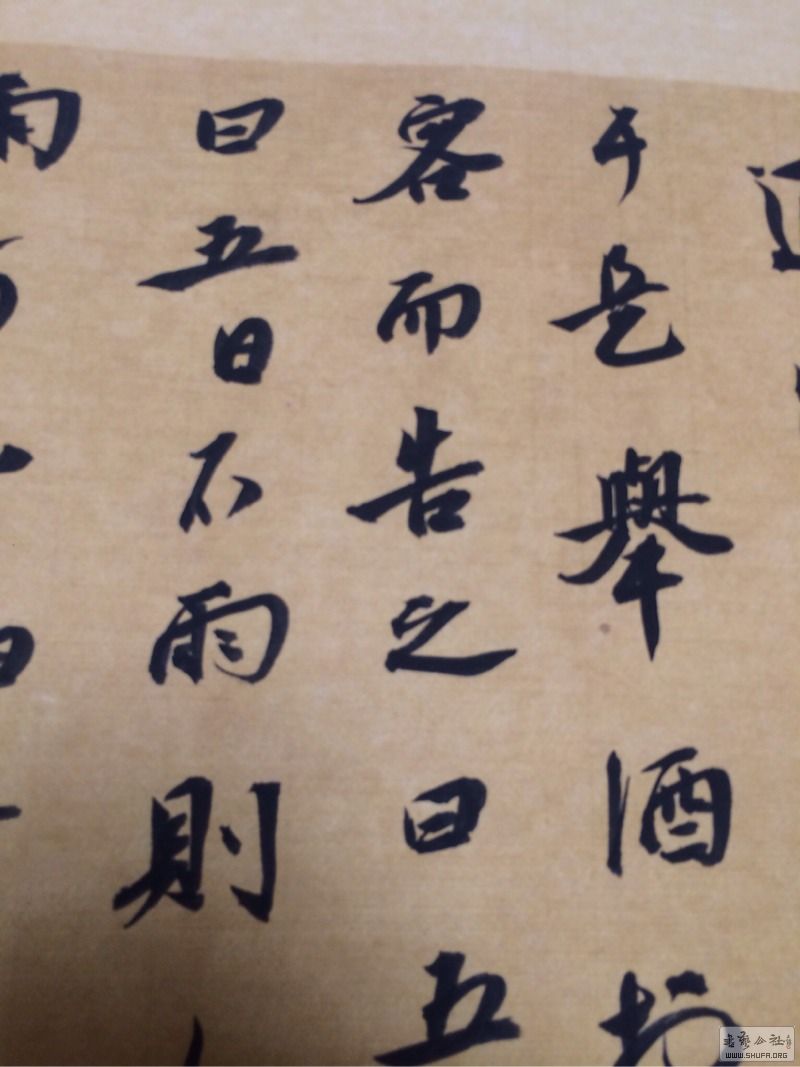 于是舉酒於
客而告之曰五
曰五日不雨則
书艺公社
WWW.SHUFA.ORG